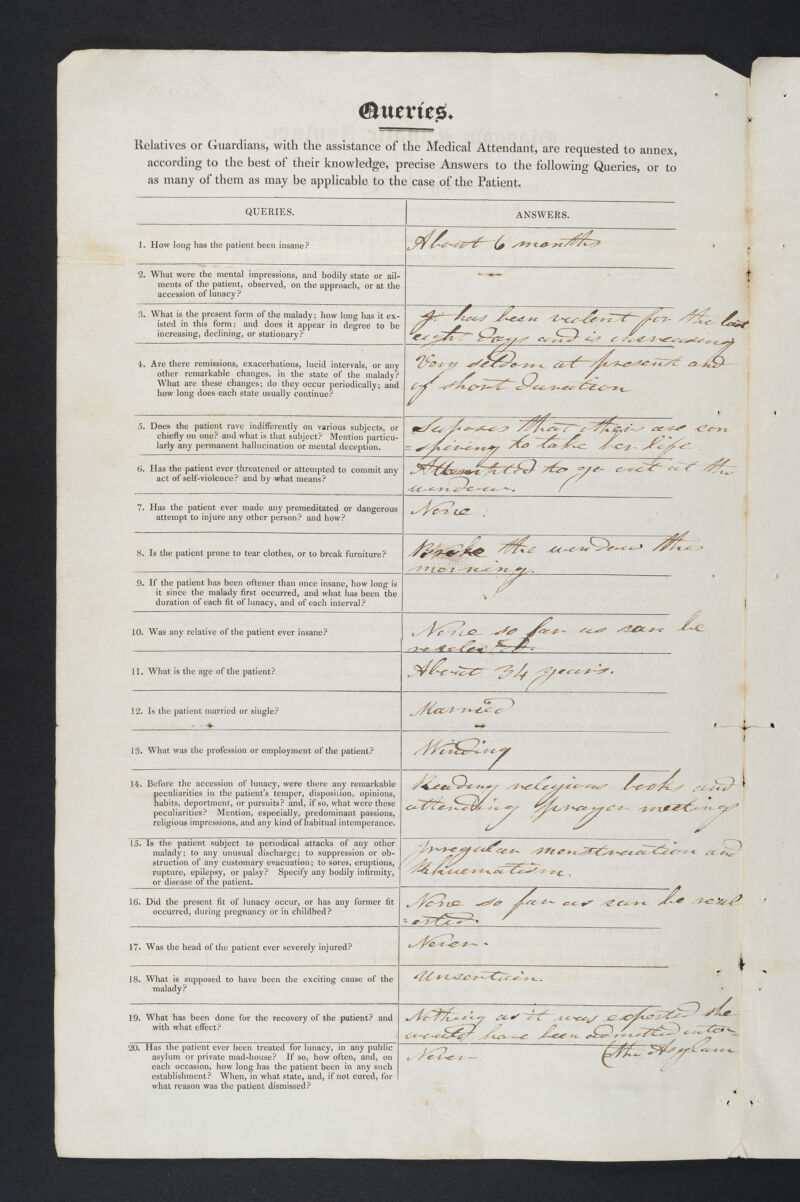 Queries.
Relatives or Guardians, with the assistance of the Medical Attendant, are requested to annex,
according to the best of their knowledge, precise Answers to the following Queries, or to
as many of them as may be applicable to the case of the Patient.
QUERIES.
ANSWERS.
1. How long has the patient been insane?
About 6 months
2. What were the mental impressions, and bodily state or ail-
ments of the patient, observed, on the approach, or at the
accession of lunacy?
3. What is the present form of the malady; how long has it ex-
isted in this form; and does it appear in degree to be
increasing, declining, or stationary?
It has been violent for the last
eight days and is increasing
4. Are there remissions, exacerbations, lucid intervals, or any
other remarkable changes, in the state of the malady?
What are these changes; do they occur periodically; and
how long does each state usually continue?
Very seldom at present and
of short duration
5. Does the patient rave indifferently on various subjects, or
chiefly on one? and what is that subject? Mention particu-
larly any permanent hallucination or mental deception.
Suposes that others are con
=spiring to take her life
6. Has the patient ever threatened or attempted to commit any
act of self-violence? and by what means?
Attempted to go out at the
window.
7. Has the patient ever made any premeditated or dangerous
attempt to injure any other person? and how?
None.
8. Is the patient prone to tear clothes, or to break furniture?
Broke the window this
morning.
9. If the patient has been oftener than once insane, how long is
it since the malady first occurred, and what has been the
duration of each fit of lunacy, and of each interval?
10. Was any relative of the patient ever insane?
None so far as can be
11. What is the age of the patient?
About 34 years.
12. Is the patient married or single?
Married
13. What was the profession or employment of the patient?
Winding
14. Before the accession of lunacy, were there any remarkable
peculiarities in the patient's temper, disposition, opinions,
habits, deportment, or pursuits? and, if so, what were these
peculiarities? Mention, especially, predominant passions,
religious impressions, and any kind of habitual intemperance.
Reading religious books and
attending prayer meetings
15. Is the patient subject to periodical attacks of any other
malady; to any unusual discharge; to suppression or ob-
struction of any customary evacuation; to sores, eruptions,
rupture, epilepsy, or palsy? Specify any bodily infirmity,
or disease of the patient.
Irregular menstruation and
Rhuematism.
16. Did the present fit of lunacy occur, or has any former fit
occurred, during pregnancy or in childbed?
None so far as can be
17. Was the head of the patient ever severely injured?
Never.
18. What is supposed to have been the exciting cause of the
malady?
Uncertain.
19. What has been done for the recovery of the patient? and
with what effect?
Nothing as it was expected she
would have been admitted into
(the Asylum
20. Has the patient ever been treated for lunacy, in any public
asylum or private mad-house? If so, how often, and, on
each occasion, how long has the patient been in any such
establishment? When, in what state, and, if not cured, for
what reason was the patient dismissed?
Never